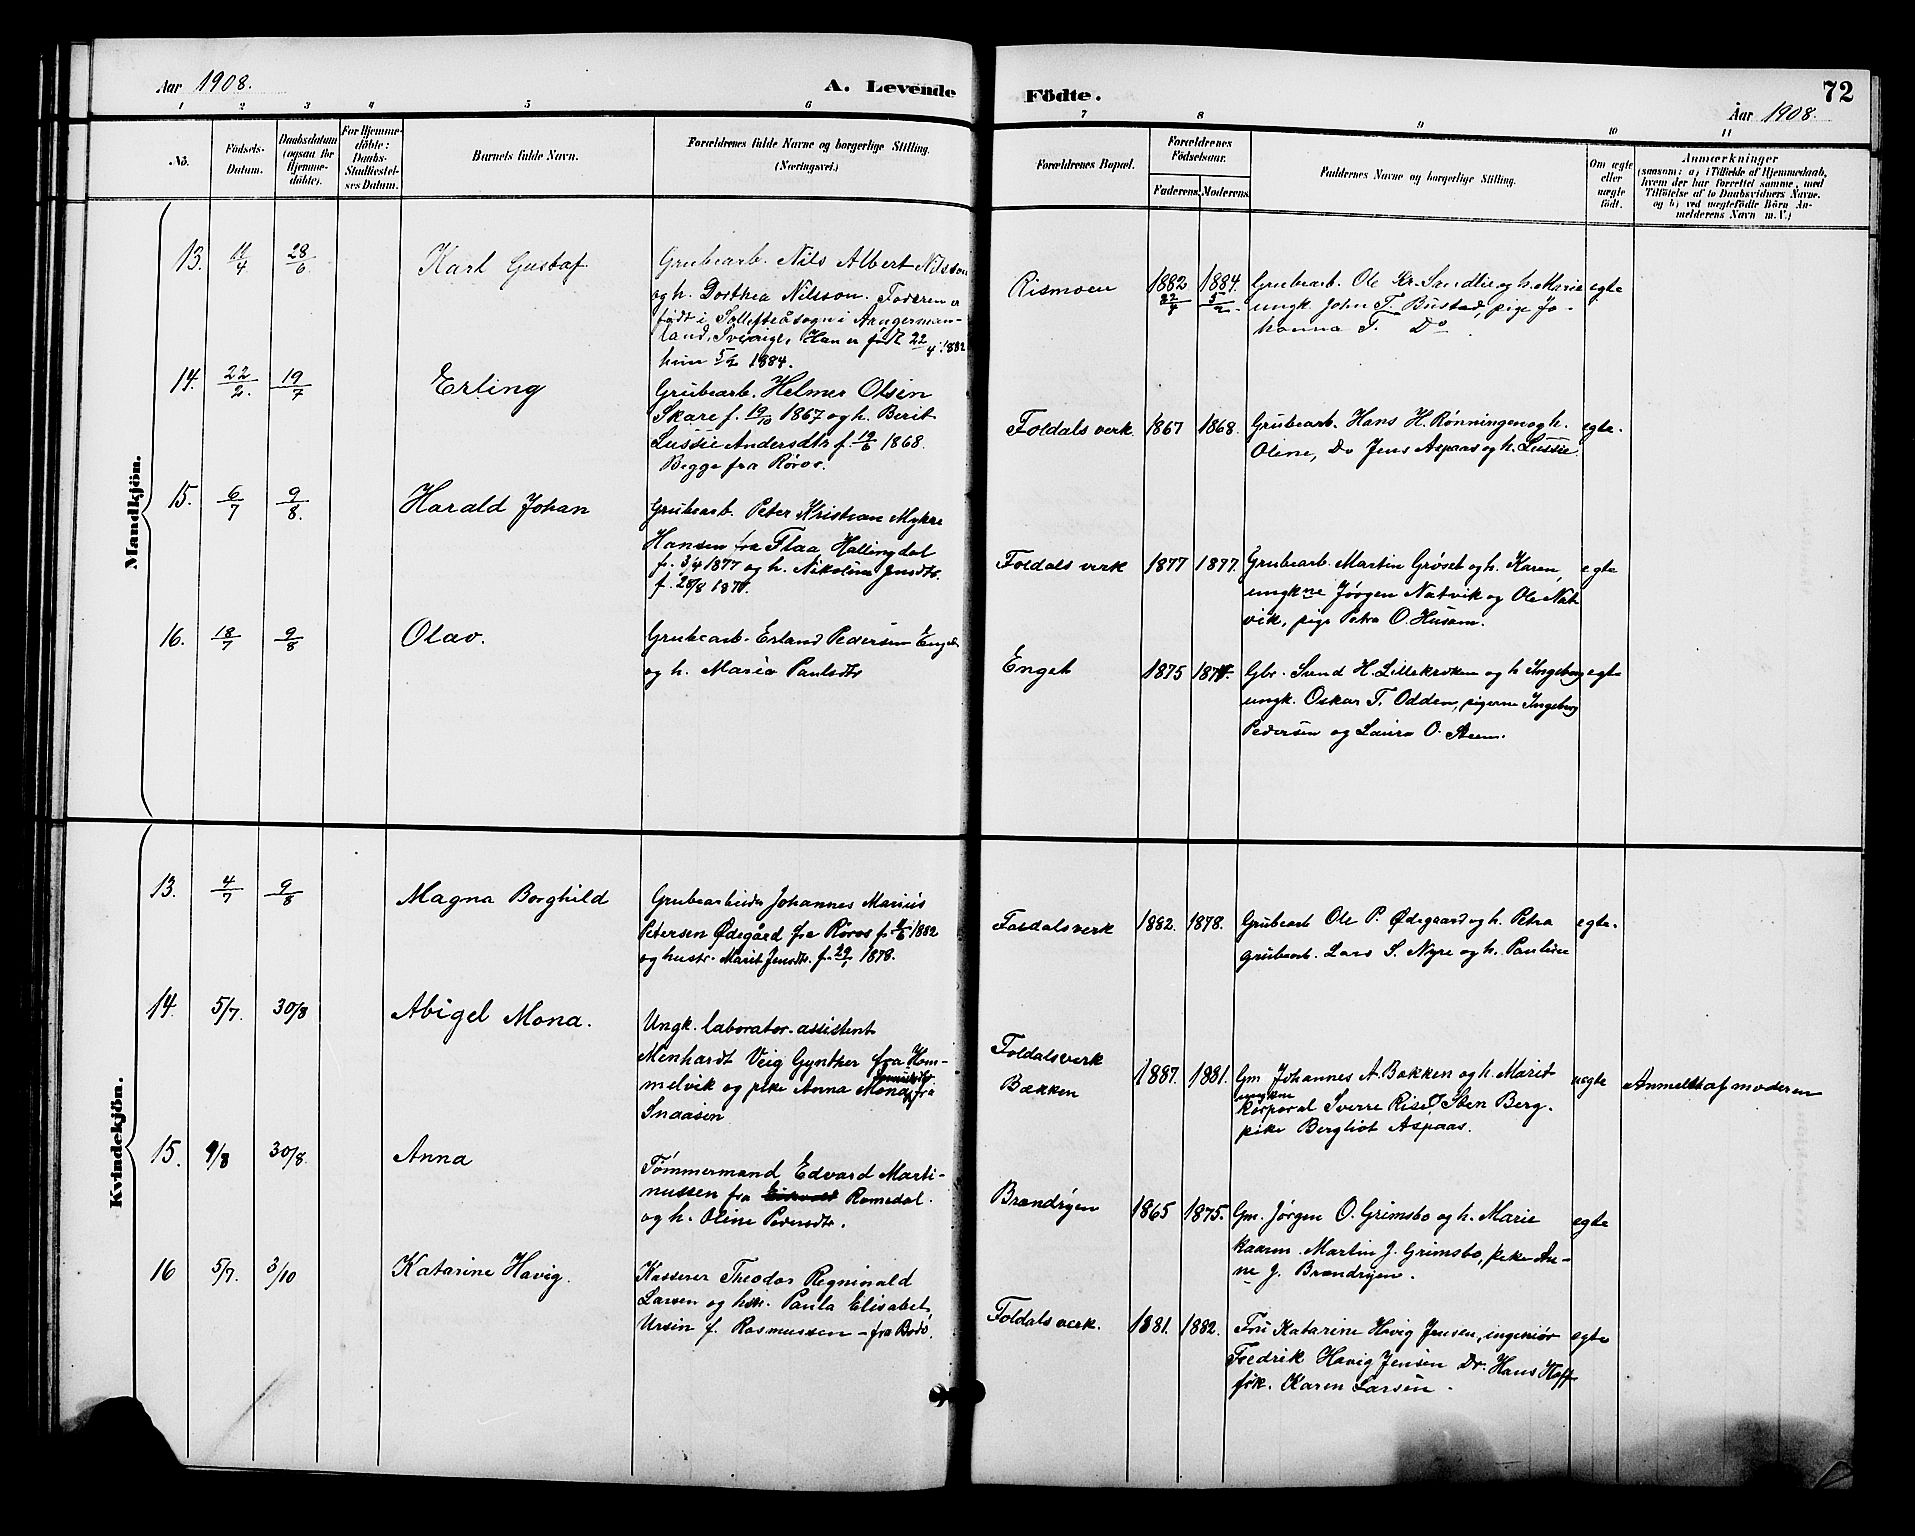 Aar 1908.
A. Levende
Födte.
72
Aar 1908.
1 2 3 4 5 6 7 8 9 10 11
No.
Födsels-
Datum.
Daabsdatum
(ogsaa for
Hjemme-
döbte).
For Hjemme-
döbte:
Daabs-
Stadfæstel-
ses Datum.
Barnets fulde Navn.
Forældrenes fulde Navne og borgerlige Stilling.
(Næringsvei.)
Forældrenes Bopæl.
Forældrenes
Födselsaar.
Faderens. Moderens.
Faddernes Navne og borgerlige Stilling.
Om ægte
eller
uægte
födt.
Anmærkninger
(saasom: a) i Tilfælde af Hjemmedaab,
hvem der har forrettet samme, med
Tilföielse af to Daabsvidners Navne,
og b) ved uægtefödte Börn An-
melderens Navn m. V.)
Mandkjön.
13. 11/4 28/6. Karl Gustaf.
Grubearb. Nils Albert Nilsson
og h. Dorthea Nilsson. Faderen er
født i Sollefteå sogn i Aangerman-
land, Sverige, Han er født 22/4 1882
hun 5/2 1884.
Rismoen
1882 22/4
1884. 5/2.
Grubearb. Ole Kr. Sandlie og h. Marie
ungk. John T. Bustad, pige Jo-
hanna T. Do
egte
14. 22/2. 19/7 Erling
Grubearb. Helmer Olsen
Skare f. 19/10 1867 og h. Berit
Lussie Andersdtr f. 19/6 1868.
Begge fra Røros.
Foldals verk. 1867 1868.
Grubearb. Hans H. Rønningen og h.
Oline, Do Jens Aspaas og h. Lussie
egte.
15. 6/7 9/8. Harald Johan
Grubearb. Peter Kristian Mykre
Hansen fra Flaa, Hallingdal
f. 3/4 1877 og h. Nikoline Jensdtr.
f. 28/8 1877.
Foldals verk 1877 1877.
Grubearb. Martin Grøset og h. Karen,
ungkne Jørgen Natvik og Ole Nat
vik, pige Petra O. Husom.
egte
16. 18/7 9/8 Olav.
Grubearb. Erland Pedersen Enget
og h. Maria Paulsdtr
Enget 1875
Gbr. Svend H. Lillekroken og h Ingeborg
ungk. Oskar T. Odden, pigerne Ingeborg
Pedersen og Laura O. Steen.
egte
Kvindekjön.
13. 4/7 9/8 Magna Borghild
Grubearbeider Johannes Marius
Petersen Ødegård fra Røros f. 11/6 1882
og hustr. Marit Jensdtr. f. 29/1 1878.
Foldalsverk 1882. 1878.
Grubearb Ole P. Ødegaard og h. Petra
grubearb. Lars S. Nyre og h. Pauline
egte.
14. 5/7. 30/8 Abigel Mona.
Ungk. laborator-assistent
Menhardt Veig Gynther fra Hom-
melvik og pike Anna Mona fra
Snaasen
Foldalsverk
Bækken
1887. 1881.
Gm Johannes A. Bakken og h. Marit
ungkne
korporal Sverre Rise, Sten Berg.
pike Bergliot Aspaas.
uegte
Anmeldt af moderen
15. 9/8 30/8. Anna
Tømmermand Edvard Marti-
nussen fra Romedal.
og h. Oline Pedersdtr.
Brændryen 1865 1875.
Gm. Jørgen O. Grimsbo og h. Marie
kaarm. Martin J. Grimsbo, pike An-
ne J. Brændryen.
egte
16 5/7. 3/10 Katarine Havig.
Kasserer Theodor Regninald
Larsen og hstr. Paula Elisabet
Ursin f. Rasmussen - fra Bodø.
Foldals verk. 1881. 1882.
Fru Katarine Havig Jensen, ingeniør
Fredrik Havig Jensen Dr. Hans Hoff
frk. Karen Larsen.
egte